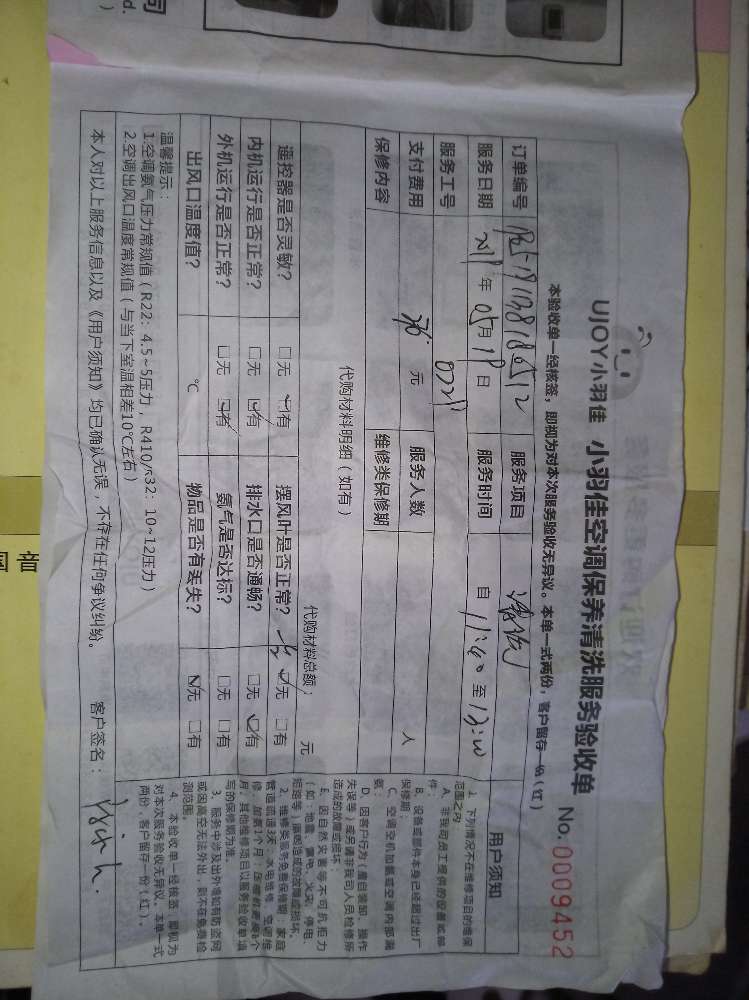 UJOY小羽佳 小羽佳空调保养清洗服务验收单
No. 0009452
本验收单一经核签，即视为对本次服务验收无异议。本单一式两份，客户留存一份（红）
订单编号 服务项目 清洗
服务日期 年 05月19日 服务时间 自 11:40 至
服务工号
支付费用 元 服务人数 人
保修内容 维修类保修期
代购材料明细（如有）
代购材料总额： 元
遥控器是否灵敏？ □无 ☑有 摆风叶是否正常？ ☑无 □有
内机运行是否正常？ □无 ☑有 排水口是否通畅？ □无 ☑有
外机运行是否正常？ □无 ☑有 氨气是否达标？ □无 □有
出风口温度值？ ℃ 物品是否有丢失？ ☑无 □有
温馨提示：
1.空调氨气压力常规值（R22：4.5~5压力，R410/R32：10~12压力）
2.空调出风口温度常规值（与当下室温相差10℃左右）
本人对以上服务信息以及《用户须知》均已确认无误，不存在任何争议纠纷。 客户签名：
用户须知
1、下列情况不在维修项目的维保
范围之内
A、非我司员工提供的设备或部
件；
B、设备或部件本身已经超过出厂
保修期；
C、空调空机加氨或空调内部漏
氨；
D、因客户行为（擅自装卸、操作
失误等）或另请非我司人员检修所
造成的故障或损坏
E、因自然灾害等不可抗拒力
（如：地震、漏电、火灾、停电、
短路等）原因造成的故障或损坏。
2、维修类服务免费保修期：家庭
管道疏通3天，水电维修、空调维
修、加氨1个月；
月；其他维修项目以服务验收单填
写的保修期为准。
3、服务中涉及出外墙如有防盗网
或因高空无法外出，则不在免费检
测范围。
4、本验收单一经核签，即视为
对本次服务验收无异议。本单一式
两份，客户留存一份（红）。
同
d.
)
国音